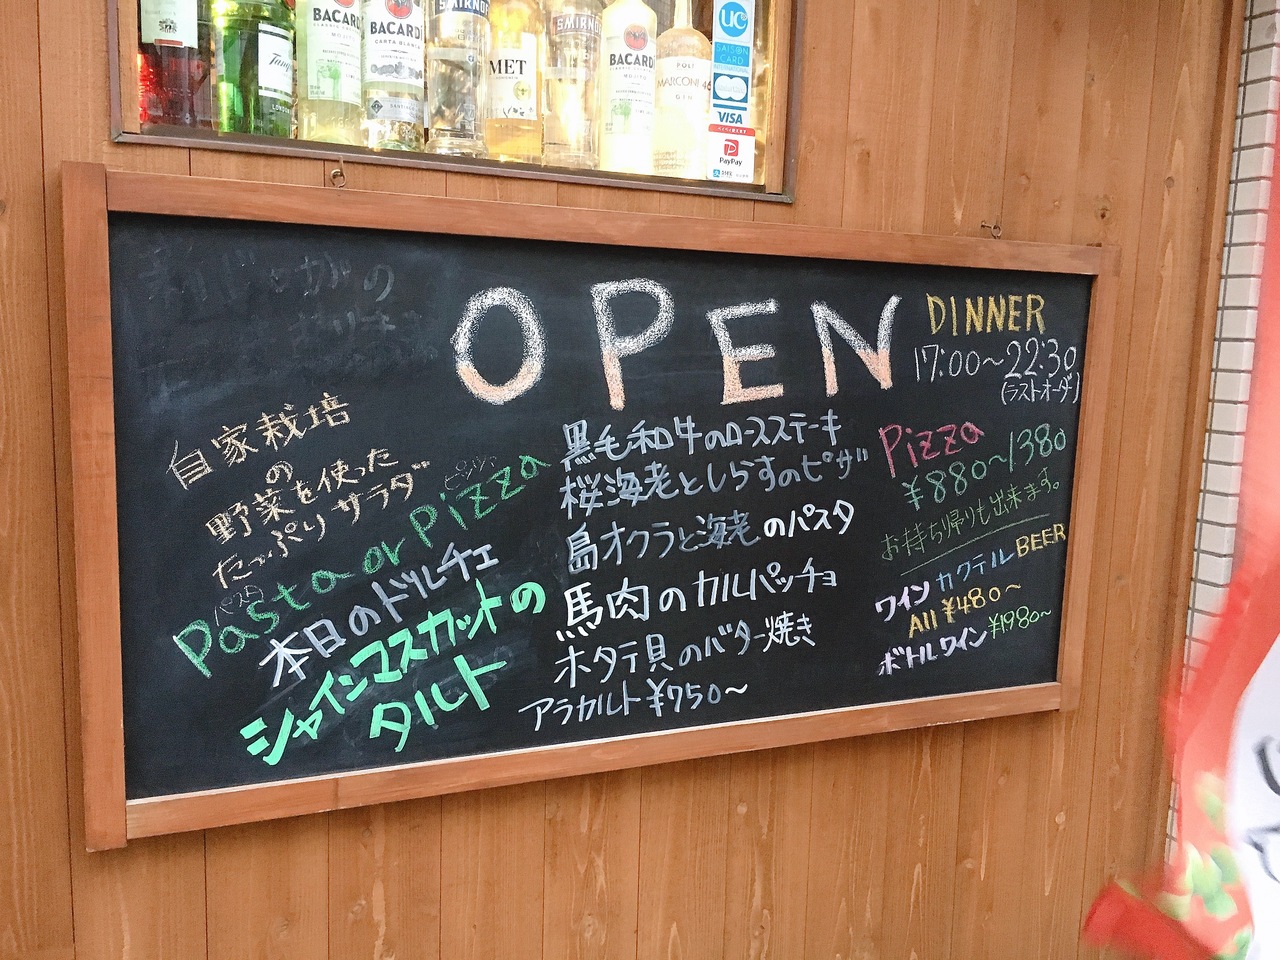 BACARDI
BACARDI
CARTA BLANCA
SMIRNOFF
MET
SMIRNOFF
BACARDI
PORT
MARCONI 46
GIN
UC
SAISON
CARD
INTERNATIONAL
VISA
PayPay
OPEN
DINNER
17:00～22:30
(ラストオーダ)
自家栽培
の
野菜を使った
たっぷりサラダ
パスタ
ピッツァ
Pasta or Pizza
本日のドルチェ
シャインマスカットの
タルト
黒毛和牛のロースステーキ
桜海老としらすのピザ
島オクラと海老のパスタ
馬肉のカルパッチョ
ホタテ貝のバター焼き
アラカルト¥750～
Pizza
¥880～1380
お持ち帰りも出来ます。
ワイン カクテル BEER
All ¥480～
ボトルワイン ¥1980～